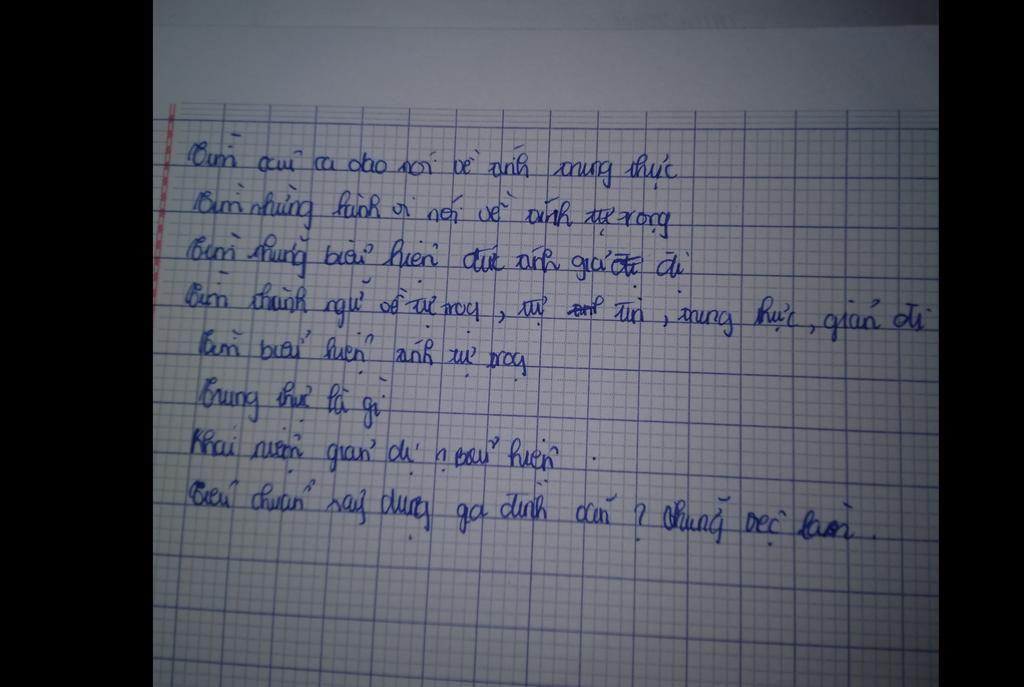 Tìm câu ca dao nói về tính trung thực
Tìm những hành vi nói về tính tự trọng
Tìm những biểu hiện đức tính giản dị
Tìm thành ngữ về tự trọng, tự tin, trung thực, giản dị
Tìm biểu hiện tính tự trọng
Trung thực là gì
Khái niệm giản dị biểu hiện
Tiêu chuẩn xây dựng gia đình văn ? những việc làm.